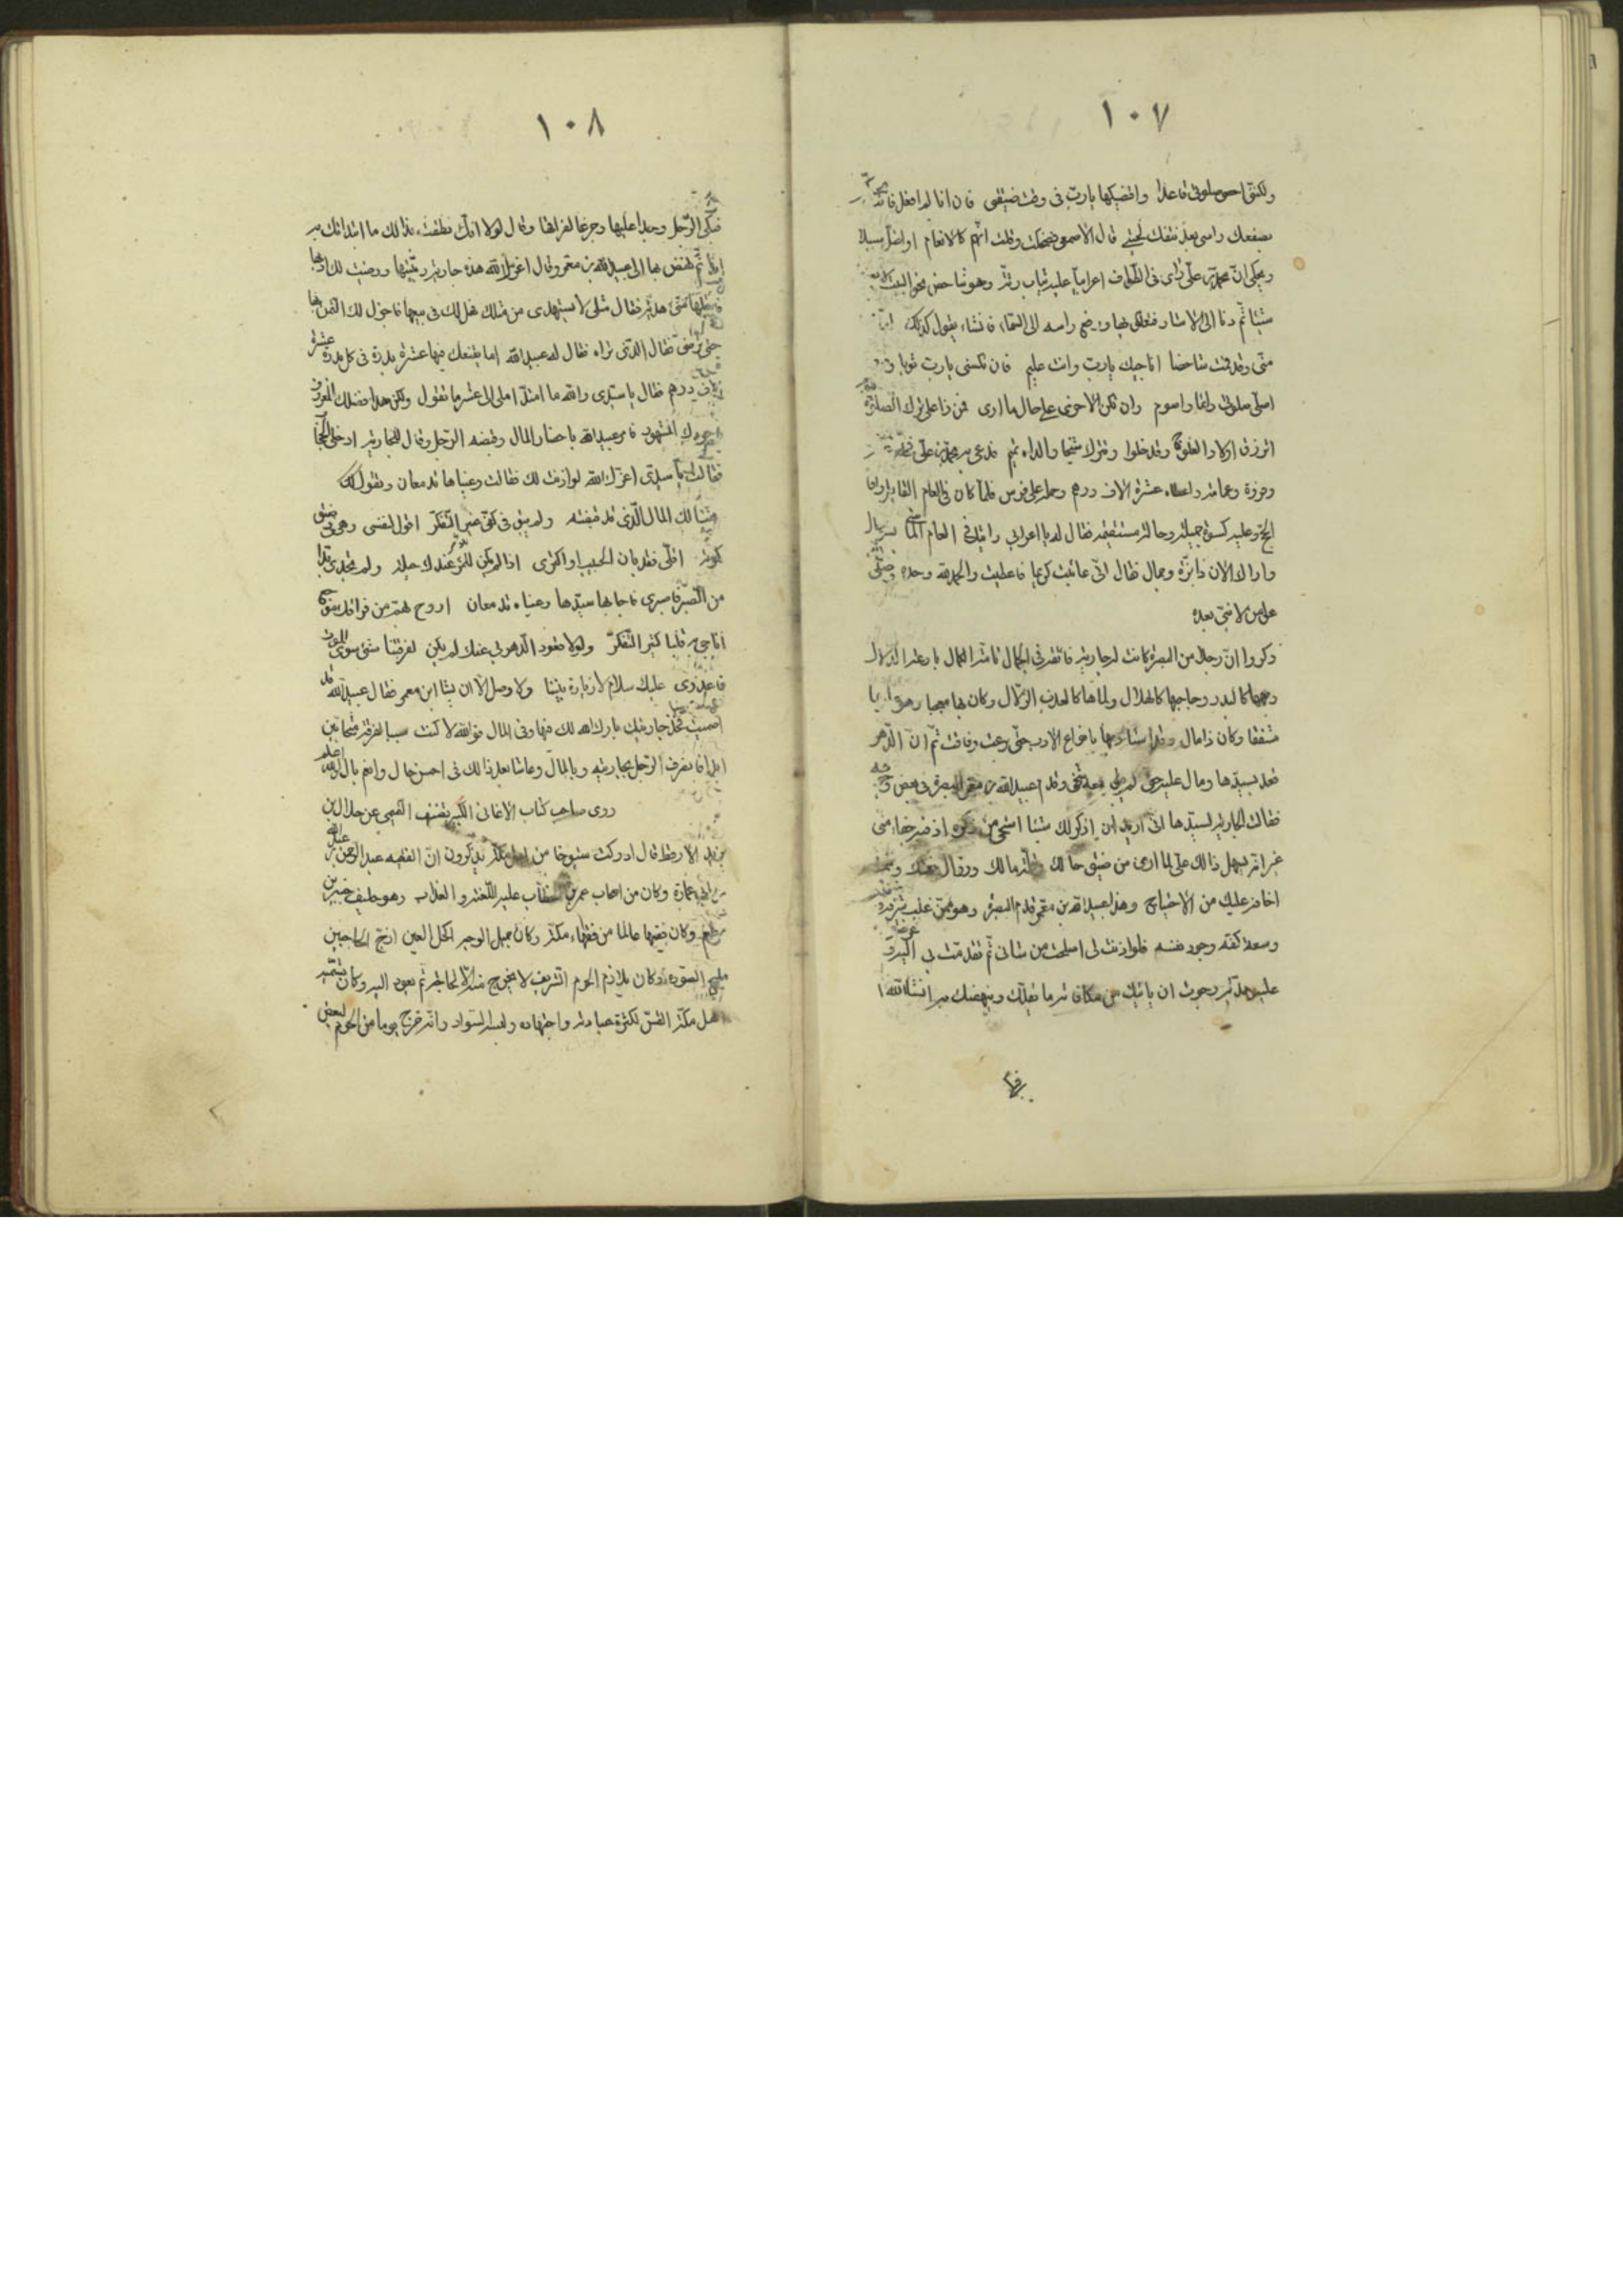 ١٠٧
ولكننى احسن صلوتى قاعدا واقضيكها يارب فى وقت ضيقى فان انا لم افعل فانت
بصفعك راسى بعد نتفك لحيتى قال الاصمعى فضحكت وقلت انهم كالانعام او اضل سبيلا
ويحكى ان محمد بن على راى فى الطواف اعرابيا عليه ثياب رثة وهو شاخص نحو البيت لا يصنع
شيئا ثم دنا الى الاستار فتعلق بها ورفع راسه الى السماء فانشاء يقول كذلك
منى وقد قمت شاخصا اناجيك يارب وانت عليم فان تكسنى يارب ثوبا و
اصلى صلوتى دائما واصوم وان تكن الاخرى على حال ما ارى فمن ذا على ترك الصلوة
اترزق اولاد العلوج وقد خلوا وتترك شيخا والداه تميم فدعى به محمد بن على فخلع عليه
وفروة وعمامة واعطاه عشرة الاف درهم وحمله على فرس فلما كان فى العام القابل وافا
الحج وعليه كسوة جميلة وحالة مستقيمة فقال له يا اعرابى رايتك فى العام الماضى بسوء حال
واراك الان ذا بزة وجمال فقال انى عاتبت كريما فاعطيت والحمد لله وحده وصلى
على من لا نبى بعده
ذكروا ان رجلا من البصرة كانت له جارية فائقة فى الجمال تامة الكمال بارعة الدلال
وجهها كالبدر وحاجبها كالهلال ولماها كالعذب الزلال وكان بها معجبا
مشفقا وكان ذا مال وقد استادبها بانواع الادب حتى برعت وفاقت ثم ان الدهر
قعد بسيدها ومال عليه حتى لم يبق معه شئ وقدم عبيد الله بن معمر البصرة فى بعض
فقالت الجارية لسيدها انى اريد ان اذكر لك شيئا استحى من ذكره اذ فيه جفاء منى
غير انه يسهل ذلك على لما ارى من ضيق حالك وقلة مالك وزوال نعمتك وما
اخافه عليك من الاحتياج وهذا عبيد الله بن معمر قدم البصرة وهو ممن علمت شرفه
وسعة كفه وجود نفسه فلو اذنت لى اصلحت من شانى ثم تقدمت بى اليه و
عليه هدية رجوت ان ياتيك من مكافاته ما يقلك وينهضك به انشاء الله
١٠٨
فبكى الرجل وجدا عليها وجزعا لفراقها وقال لولا انك نطقت بذلك ما ابتداتك به
ابدا ثم نهض بها الى عبيد الله بن معمر وقال اعزك الله هذه جارية ربيتها ورضيت لك بها
فاقبلها منى هدية فقال مثلى لا يستهدى من مثلك فهل لك فى بيعها فاجزل لك الثمن بها
حتى ترضى فقال الذى تراه فقال له عبيد الله اما يقنعك منها عشرة بدرة فى كل بدرة عشرة
الاف درهم فقال يا سيدى والله ما امتد املى الى عشر ما تقول ولكن هذا فضلك المعروف
وجودك المشهود فامر عبيد الله باحضار المال وقبضه الرجل وقال للجارية ادخلى الحجاب
فقالت يا سيدى اعزك الله لو اذنت لك فقالت وعيناها تدمعان وتقول
هنيئا لك المال الذى قد قبضته ولم يبق فى كفى غير التفكر اقول لنفسى وهى فى ضيق
كربة اقلى فقد بان الحبيب او اكثرى اذا لم يكن للامر عندك حيلة ولم تجدى بدا
من الصبر فاصبرى فاجابها سيدها وعيناه تدمعان اروح بهم من فراقك موجع
اناجى به قلبا كثير التفكر ولولا قعود الدهر بى عنك لم يكن لفرقتنا شئ سوى الموت
فاعذرى عليك سلام لا زيارة بيننا ولا وصل الا ان يشا ابن معمر فقال عبيد الله قد
شئت فخذ جاريتك بارك الله لك فيها وفى المال فوالله لا كنت سببا لفرقة متحابين
ابدا فانصرف الرجل بجاريته وبالمال وعاشا بعد ذلك فى احسن حال وانعم بال والله اعلم
روى صاحب كتاب الاغانى الكبير
الارقط قال ادركت شيوخا من اهل مكة يذكرون ان الفقيه عبد الرحمن بن عبد الله
بن ابى عمارة وكان من اصحاب عمر بن الخطاب عليه اللعنة والعذاب وهو حليف
وكان فقيها عالما من فقهاء مكة وكان جميل الوجه اكحل العين ازج الحاجبين
مليح الصورة وكان يلازم الحرم الشريف لا يخرج منه الا لحاجة ثم يعود اليه وكان يسميه
اهل مكة القس لكثرة عبادته واجتهاده ولبسه السواد وانه خرج يوما من الحرم لبعض